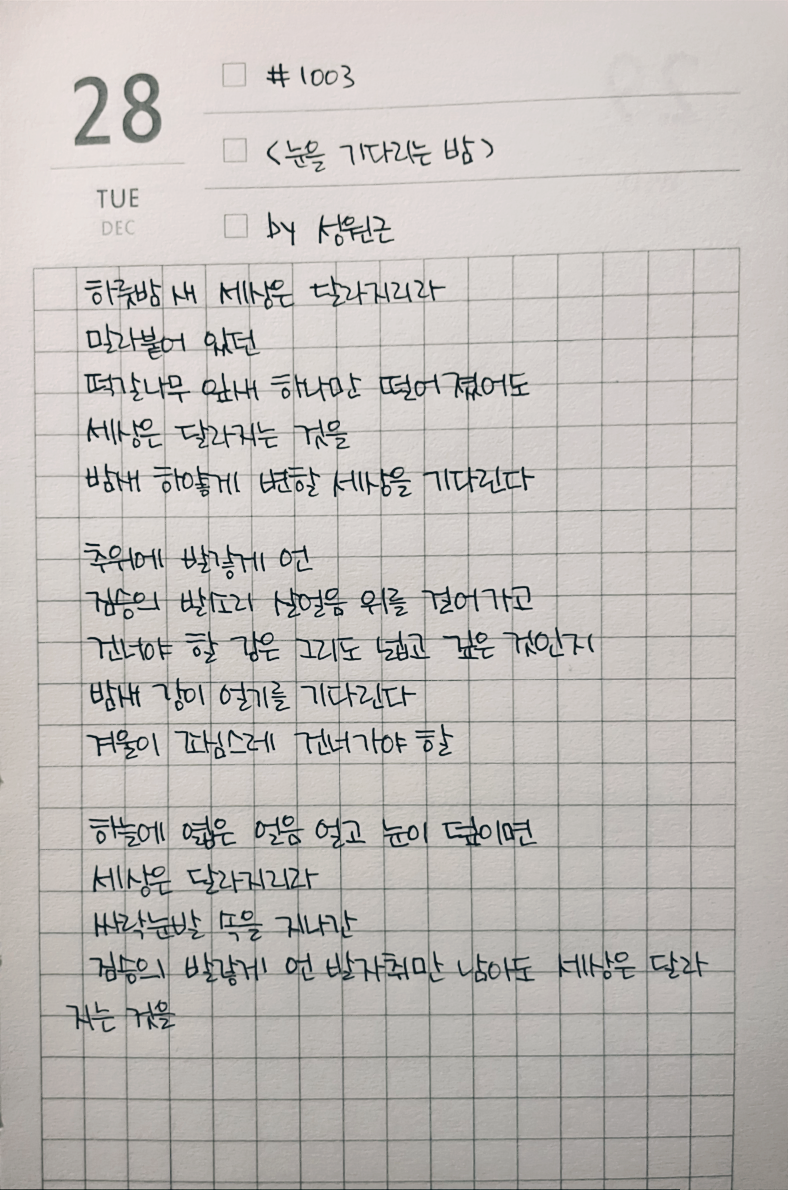 28
TUE
DEC
#1003
<눈을 기다리는 밤>
by 성원근
하룻밤 새 세상은 달라지리라
말라붙어 있던
떡갈나무 잎새 하나만 떨어졌어도
세상은 달라지는 것을
밤새 하얗게 변할 세상을 기다린다
추위에 발갛게 언
짐승의 발소리 살얼음 위를 걸어가고
건너야 할 강은 그리도 넓고 깊은 것인지
밤새 강이 얼기를 기다린다
겨울이 짜임스레 건너가야 할
하늘에 엷은 얼음 얼고 눈이 덮이면
세상은 달라지리라
싸락눈발 뚝을 지나간
짐승의 발갛게 언 발자취만 남아도 세상은 달라
지는 것을